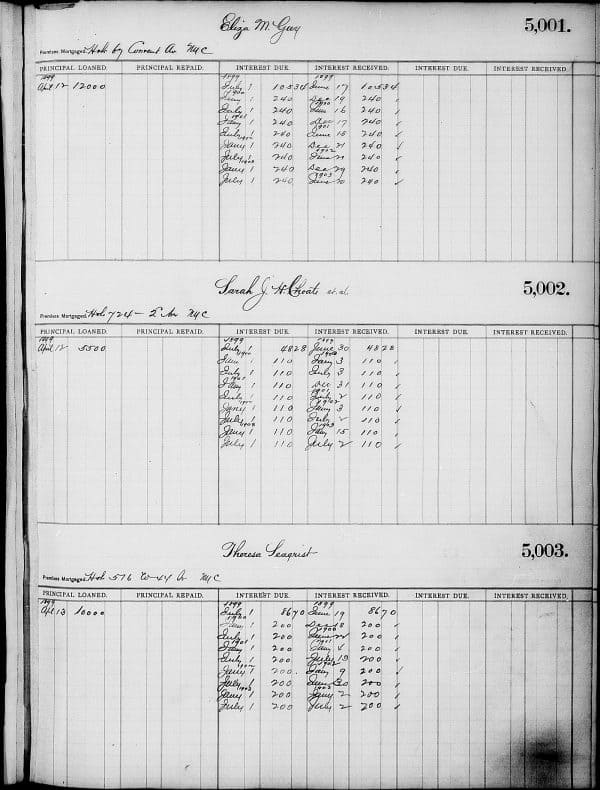 Eliza M. Guy 5,001.
Premises Mortgaged. Convent Av NYC
PRINCIPAL LOANED. PRINCIPAL REPAID. INTEREST DUE. INTEREST RECEIVED. INTEREST DUE. INTEREST RECEIVED.
1899 1899 1899
April 12 12000 July 1 10534 June 17 10534
1900
Jany 1 240 Dec 19 240
1900
July 1 240 June 16 240
1901
Jany 1 240 Dec 17 240
1901
July 1 240 June 15 240
Jany 1 240 Dec 21 240
1902
July 1 240 June 240
Jany 1 240 Dec 29 240
1903
July 1 240 June 20 240
Sarah J. H. Choate et al. 5,002.
Premises Mortgaged. 724 - 2 Av NYC
PRINCIPAL LOANED. PRINCIPAL REPAID. INTEREST DUE. INTEREST RECEIVED. INTEREST DUE. INTEREST RECEIVED.
1899 1899 1899
April 12 5500 July 1 4828 June 30 4828
1900 1900
Jany 1 110 Jany 3 110
July 1 110 July 3 110
1901
Jany 1 110 Dec 31 110
1901
July 1 110 July 2 110
1902 1902
Jany 1 110 Jany 3 110
July 1 110 July 2 110
1903 1903
Jany 1 110 Jany 15 110
July 1 110 July 2 110
Theresa Seagrist 5,003.
Premises Mortgaged. 576 W 44 NYC
PRINCIPAL LOANED. PRINCIPAL REPAID. INTEREST DUE. INTEREST RECEIVED. INTEREST DUE. INTEREST RECEIVED.
1899 1899 1899
April 13 10000 July 1 8670 June 19 8670
1900
Jany 1 200 Dec 18 200
1900
July 1 200 June 22 200
1901 1901
Jany 1 200 Jany 4 200
July 1 200 July 13 200
1902 1902
Jany 1 200 Jany 9 200
July 1 200 June 30 200
1903 1903
Jany 1 200 Jany 2 200
July 1 200 July 2 200